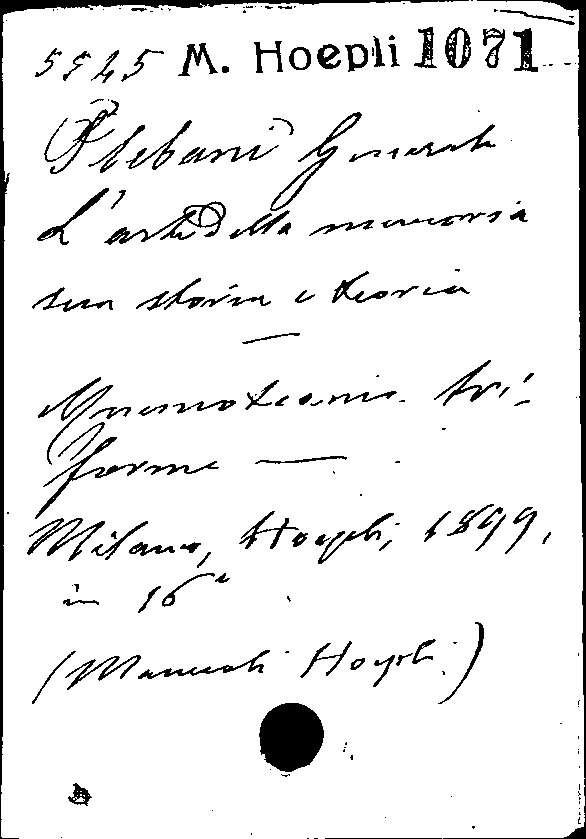 5525 M. Hoepli 1071
Plebani Benedetto
L'arte della memoria
sua storia e teoria
—
Mnemotecnia tri-
forme —
Milano, Hoepli, 1899,
in 16°
(Manuali Hoepli)